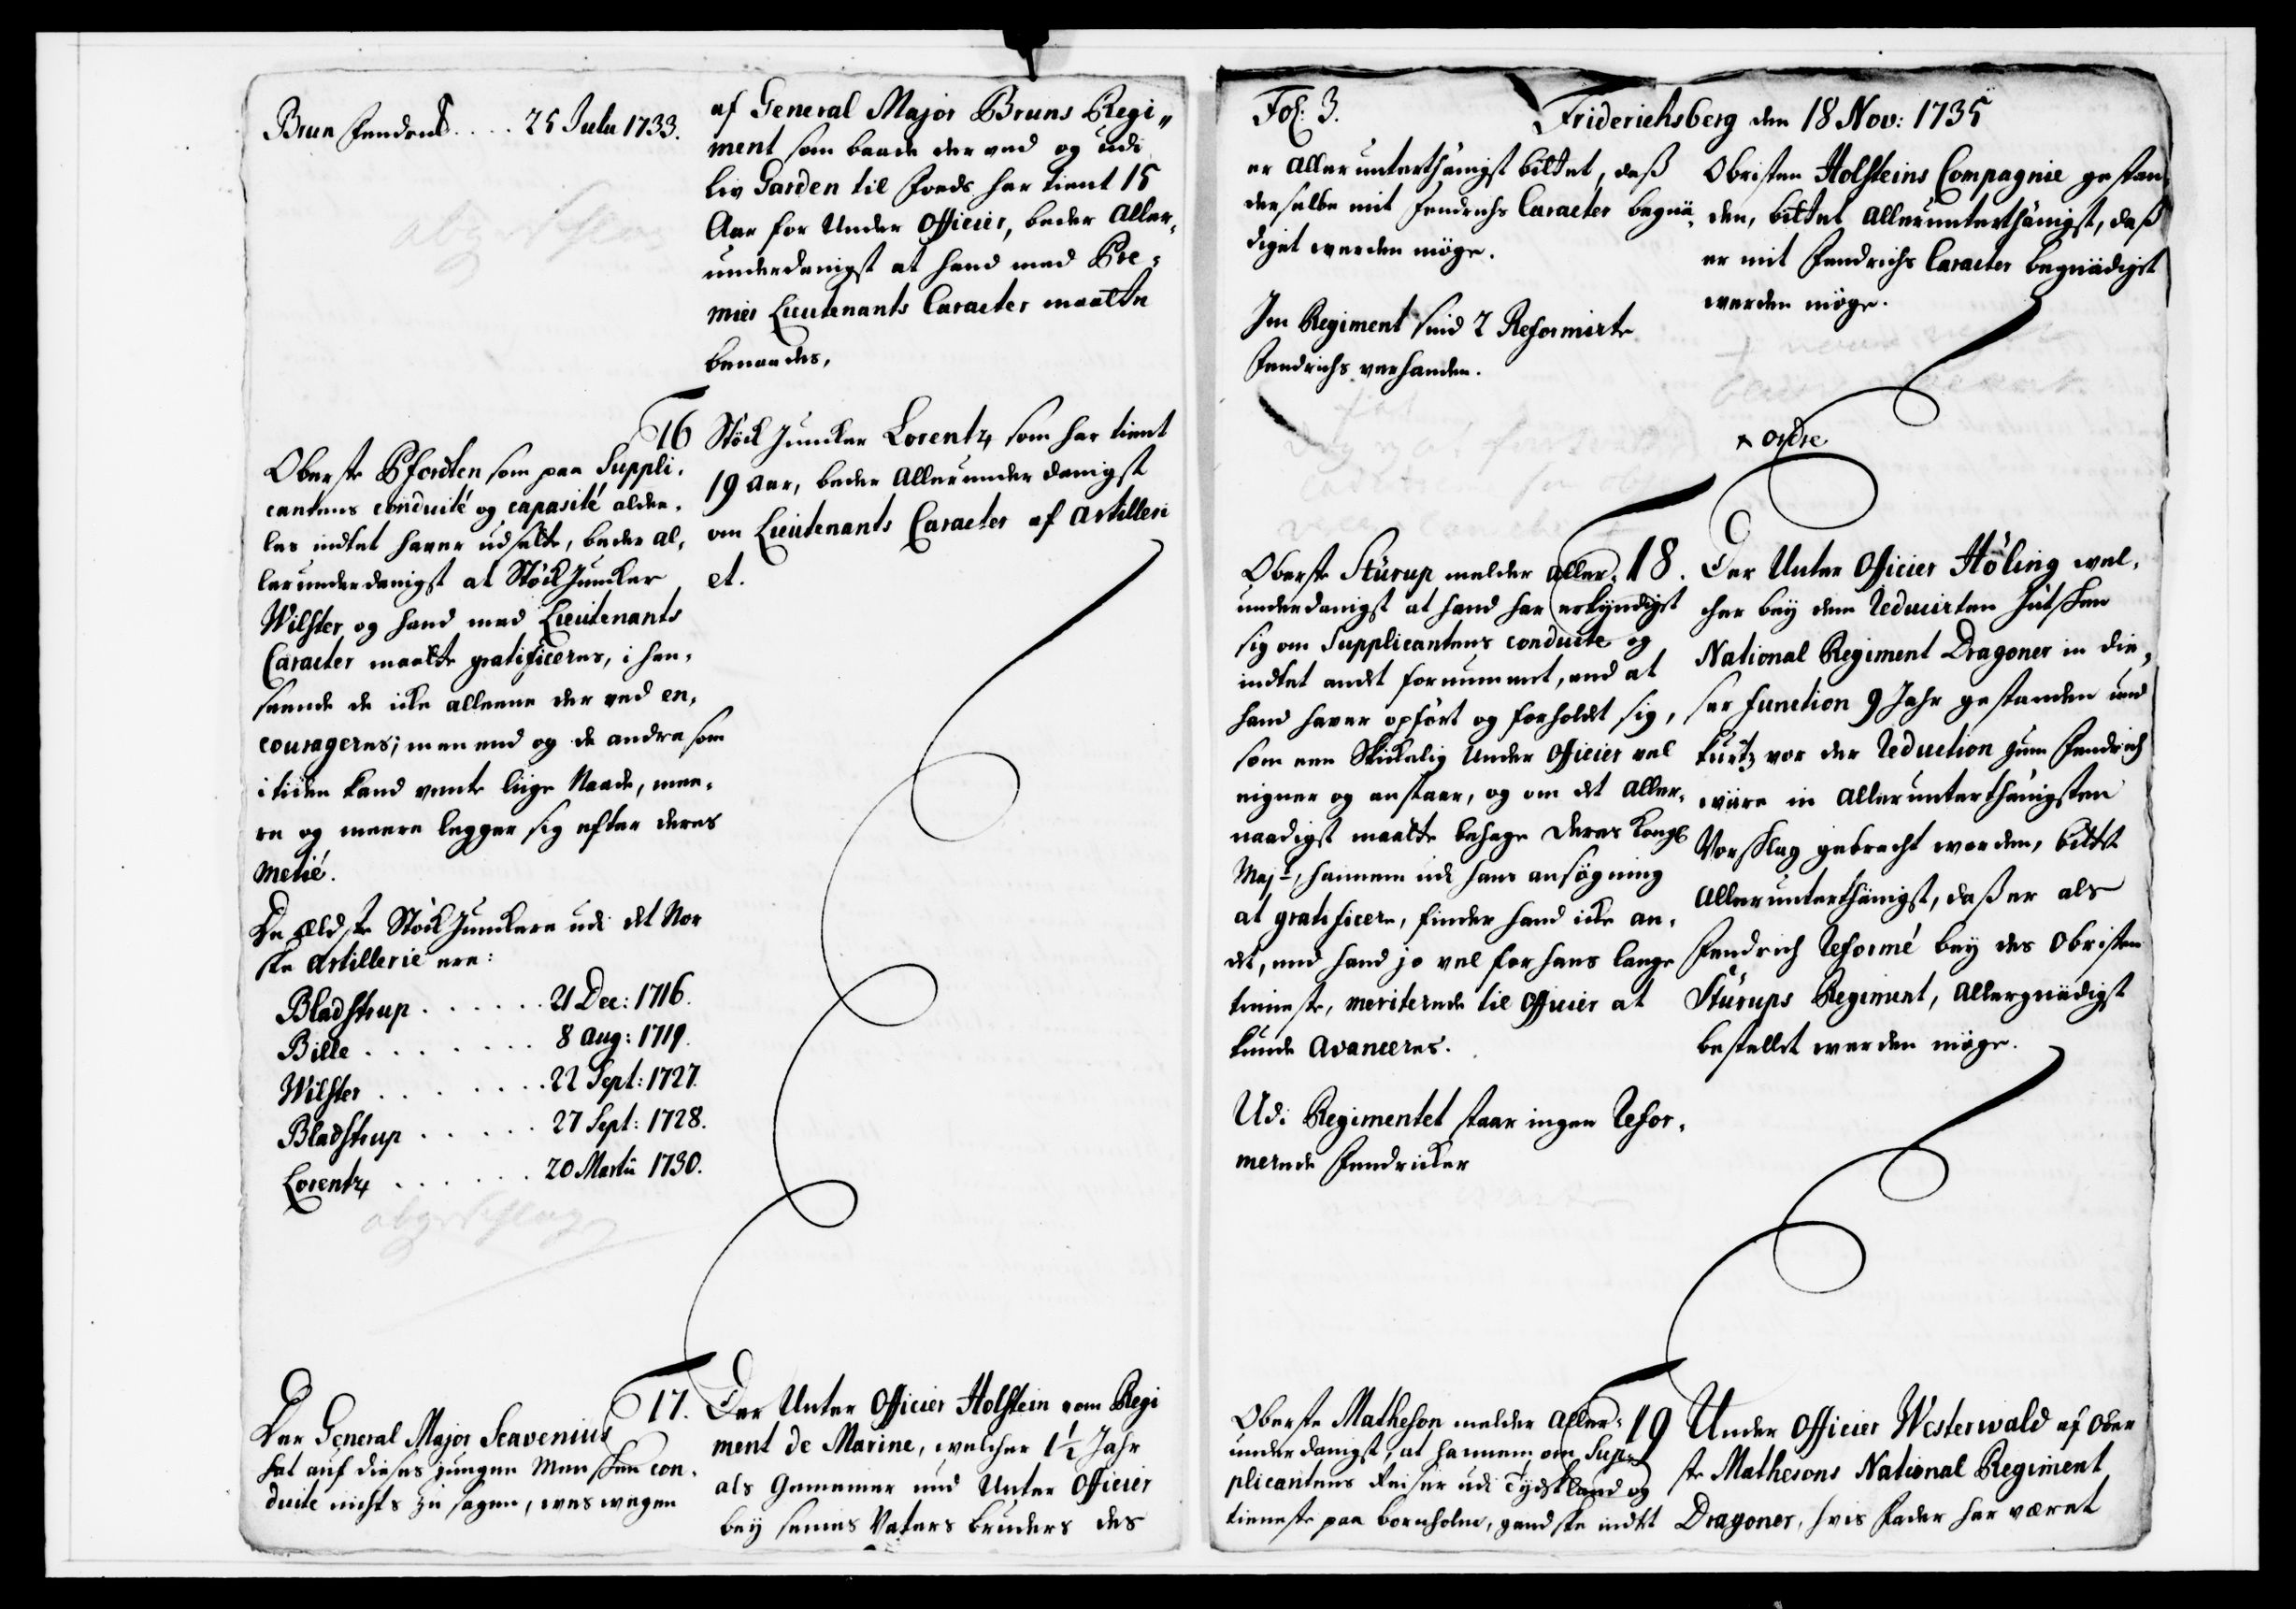 Brun Fendrich.... 25 Julii 1733.
abgeschlag
af General Major Bruns Regi„
ment som baade der ved og udi
liv Garden til Foeds har tient 15
Aar for Under Officier, beder Aller,
underdanigst at hand med Pre,
mier Lieutenants Caracter maatte
benaades,
16
Oberste Pfordten som paa Suppli,
cantens conduité og capasité alde,
les indtet haver udsatte, beder al,
lerunderdanigst at StöckJuncker
Wilster og hand med Lieutenants
Caracter maatte gratificeres, i hen,
seende de icke alleene der ved en,
courageres; men end og de andre som
i tiiden kand vente liige Naade, mee,
re og meere legger sig efter deres
metié.
De Eldste StöckJunckere udi det Nor
ske Artillerie ere:
Bladstrup ...... 21 Dec: 1716.
Bille ........ 8 Aug: 1719.
Wilster ....... 22 Sept: 1727.
Bladstrup ..... 27 Sept: 1728.
Lorentz ...... 20 Martii 1730.
abgeschlag
Stöck Juncker Lorentz som har tient
19 Aar, beder Allerunderdanigst
om Lieutenants Caracter af Artilleri
et.
17.
Der General Major Scavenius
hat auf dieses jungen Menschen con,
duite nichts zu sagen, weswegen
Der Unter Officier Holstein vom Regi
ment de Marine, welcher 1½ Jahr
als Gemeiner und Unter Officier
bey seines Vaters bruders des
Fol: 3.
Friderichsberg den 18 Nov: 1735
er Allerunterthänigst bittet, daß
derselbe mit Fendrichs Caracter begnä,
diget werden möge.
Im Regiment sind 2 Reformirte
Fendrichs verhanden.
Obristen Holsteins Compagnie gestan,
den, bittet Allerunterthänigst, daß
er mit Fendrichs Caracter begnädiget
werden möge.
ordre
18.
Oberste Stürup melder Aller,
underdanigst at hand har erkyndiget
sig om Supplicantens conduite og
indtet andet fornummet, end at
hand haver opfört og forholdt sig,
som een Skickelig Under Officier vel
eigner og anstaar, og om det Aller,
naadigst maatte behage Deres Kongl
Mayt, hannem udi hans ansögning
at gratificere, finder hand icke an,
det, end hand jo vel for hans lange
tieneste, meriterede til Officier at
kunde avanceres.
Udi Regimentet staar ingen Refor,
merede Fendricker
Der Unter Officier Höling wel,
cher bey dem Reducirten Jütschen
National Regiment Dragoner in die,
ser function 9 Jahr gestanden und
kurtz vor der Reduction zum Fendrich
wäre in Allerunterthänigsten
Vorschlag gebracht worden, bittet
Allerunterthänigst, daß er als
Fendrich Reformé bey des Obristen
Stürups Regiment, Allergnädigst
bestellet werden möge.
19
Oberste Matheson melder Aller,
underdanigst, at hannem om Sup,
plicantens Reiser udi Tydskland og
tieneste paa Bornholm, gandske indtet
Under Officier Westerwald af Ober
ste Mathesons National Regiment
Dragoner, hvis Fader har været